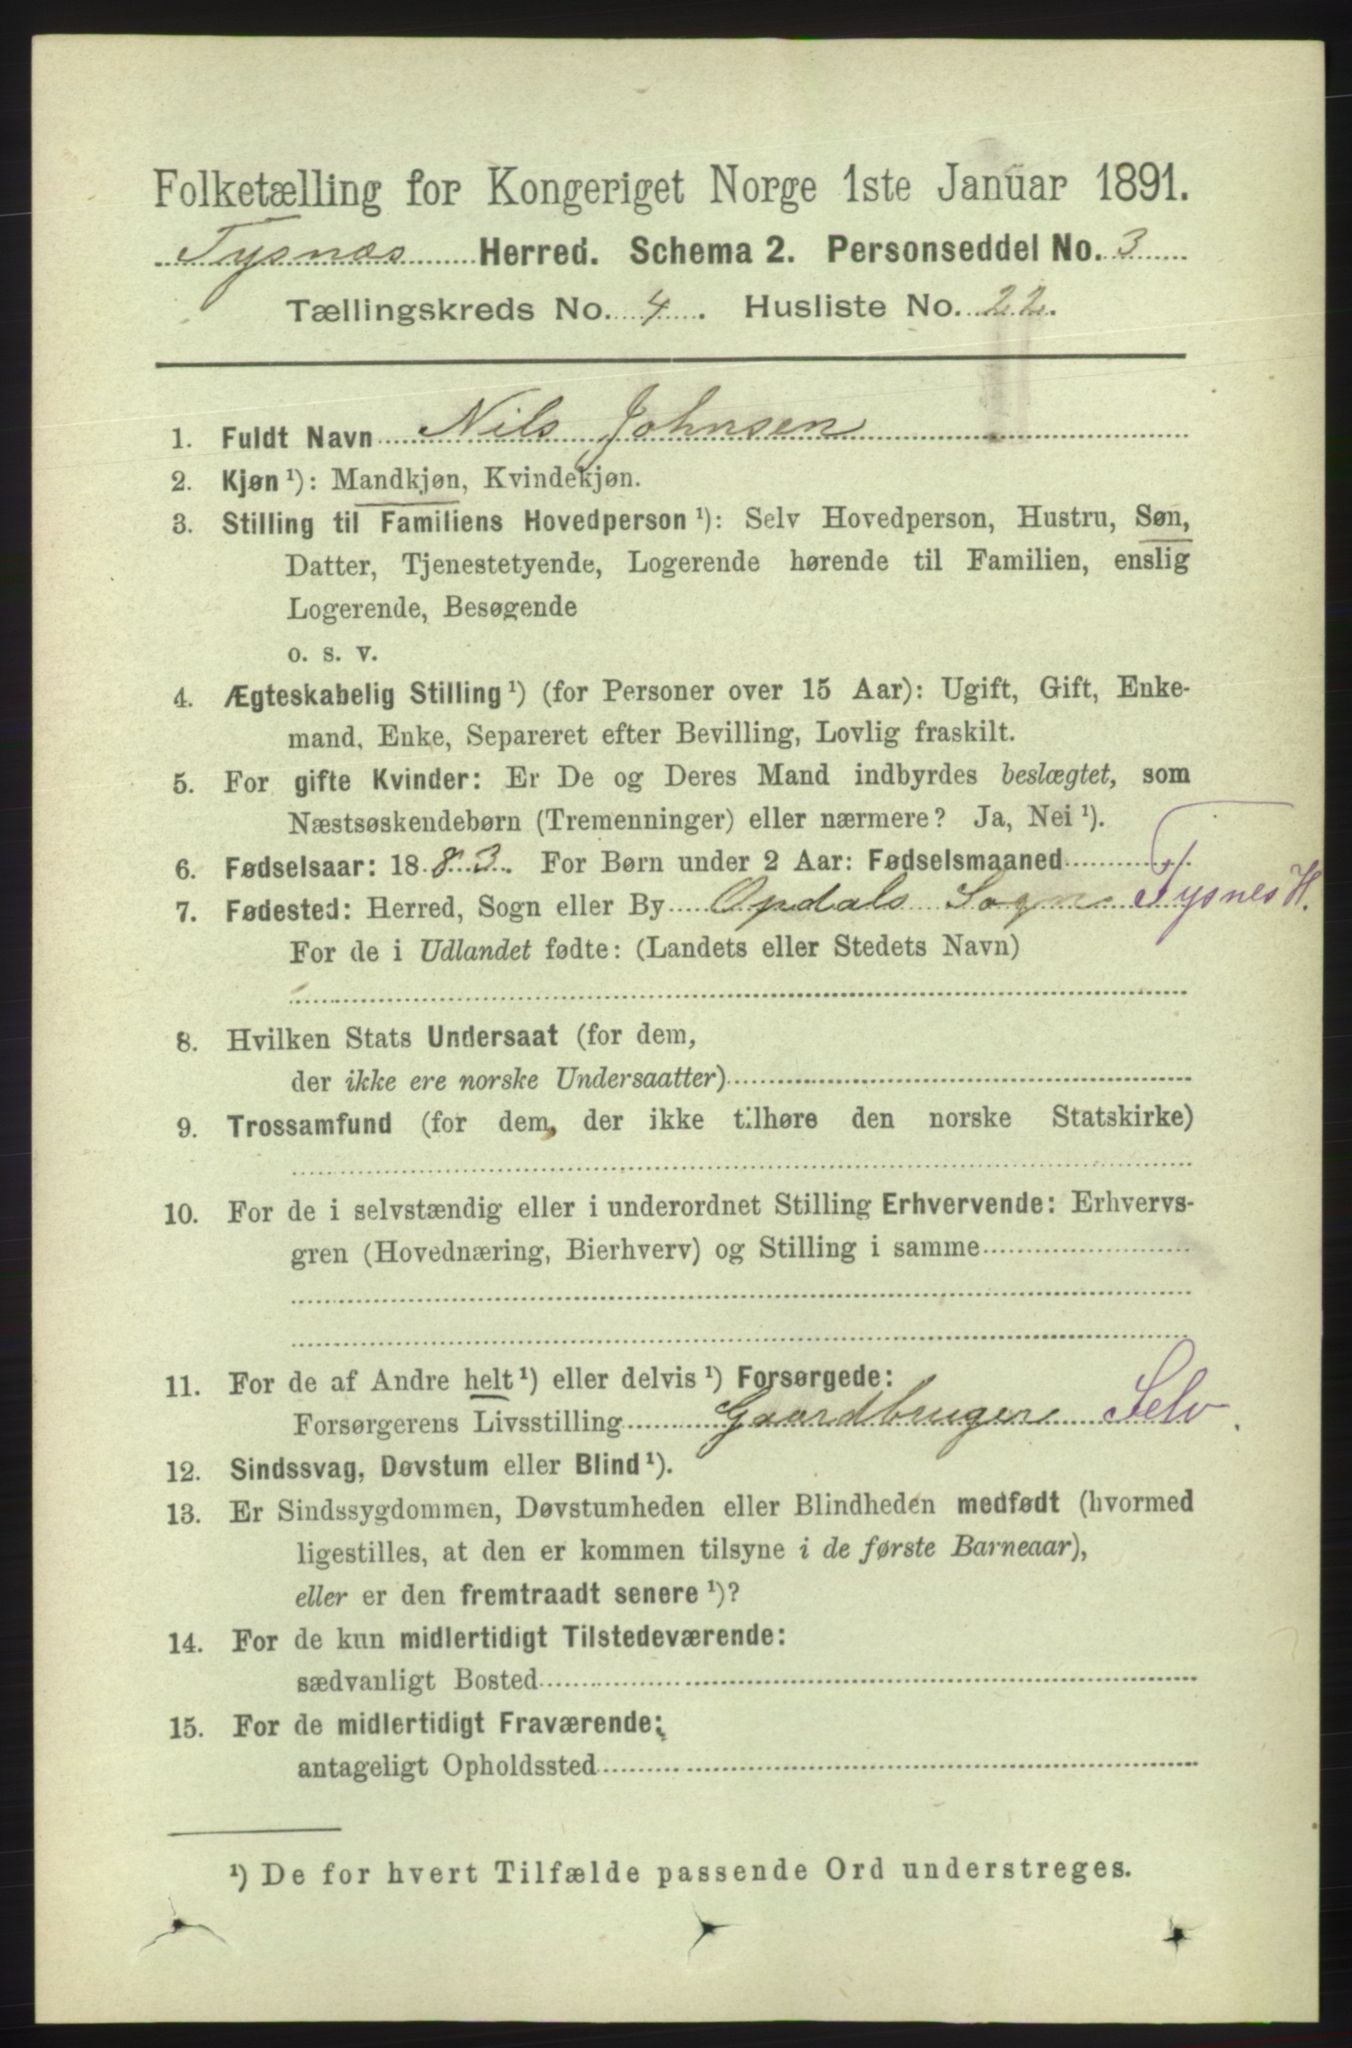 Folketælling for Kongeriget Norge 1ste Januar 1891.
Tysnæs Herred. Schema 2. Personseddel No. 3
Tællingskreds No. 4. Husliste No. 22.
1. Fuldt Navn Nils Johnsen
2. Kjøn ¹): Mandkjøn, Kvindekjøn.
3. Stilling til Familiens Hovedperson ¹): Selv Hovedperson, Hustru, Søn,
Datter, Tjenestetyende, Logerende hørende til Familien, enslig
Logerende, Besøgende
o. s. v.
4. Ægteskabelig Stilling ¹) (for Personer over 15 Aar): Ugift, Gift, Enke-
mand, Enke, Separeret efter Bevilling, Lovlig fraskilt.
5. For gifte Kvinder: Er De og Deres Mand indbyrdes beslægtet, som
Næstsøskendebørn (Tremenninger) eller nærmere? Ja, Nei ¹).
6. Fødselsaar: 1883. For Børn under 2 Aar: Fødselsmaaned
7. Fødested: Herred, Sogn eller By Opdals Sogn Tysnes H.
For de i Udlandet fødte: (Landets eller Stedets Navn)
8. Hvilken Stats Undersaat (for dem,
der ikke ere norske Undersaatter)
9. Trossamfund (for dem, der ikke tilhøre den norske Statskirke)
10. For de i selvstændig eller i underordnet Stilling Erhvervende: Erhvervs-
gren (Hovednæring, Bierhverv) og Stilling i samme
11. For de af Andre helt ¹) eller delvis ¹) Forsørgede:
Forsørgerens Livsstilling Gaardbruger Selv
12. Sindssvag, Døvstum eller Blind ¹).
13. Er Sindssygdommen, Døvstumheden eller Blindheden medfødt (hvormed
ligestilles, at den er kommen tilsyne i de første Barneaar),
eller er den fremtraadt senere ¹)?
14. For de kun midlertidigt Tilstedeværende:
sædvanligt Bosted
15. For de midlertidigt Fraværende:
antageligt Opholdssted
¹) De for hvert Tilfælde passende Ord understreges.